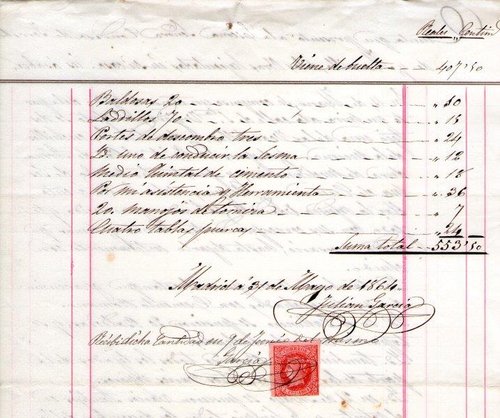 Reales Centims
Viene de buelta — 407'50
Baldosas 20 — " 30
Ladrillos 70 — " 15
Portes de descombro tres " 24
Yd. uno de conducir la losma " 12
Medio Quintal de cemento — " 18
Pr. mi asistencia y Herramienta " 36
20 manojos de tomiza — " 7
Cuatro tablas puercas — " 24
Suma total — 553'50
Madrid á 31 de Mayo de 1864
Julian Garcia
Recibi dicha Cantidad en 9 de Junio del mismo
Garcia